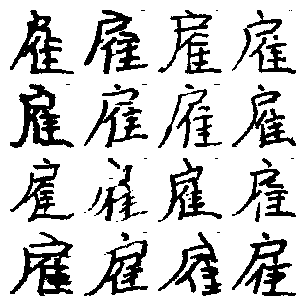 雇 雇 雇 雇
雇 雇 雇 雇
雇 雇 雇 雇
雇 雇 雇 雇